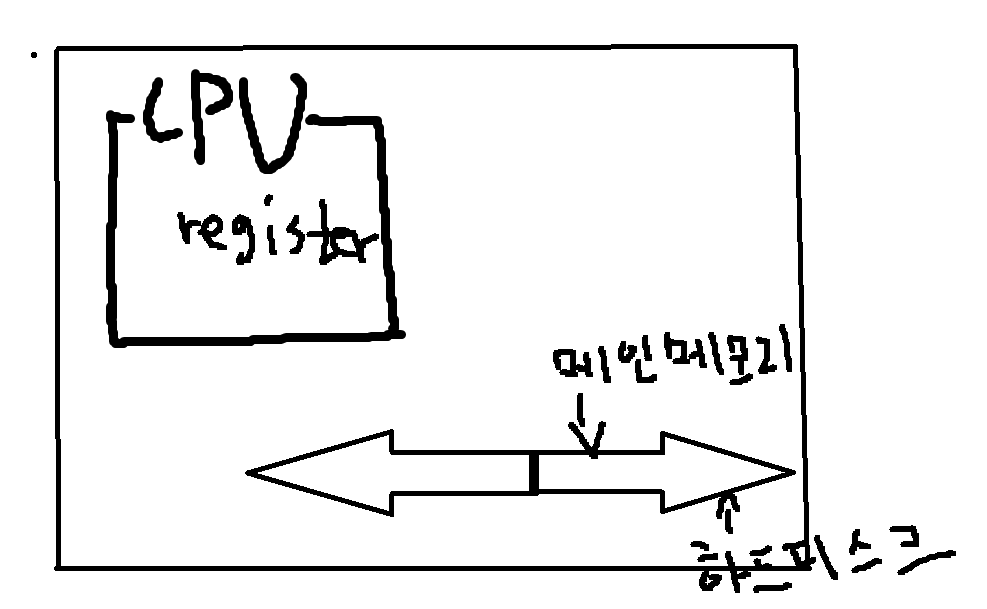 CPU
register
메인메모리
하드디스크